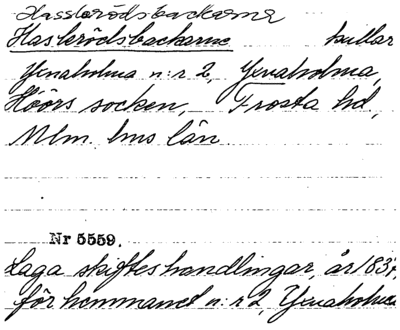 Hasslerödsbackarna
Haslerödsbackarne kullar
Yxnaholma n:r 2, Yxnaholma,
Höörs socken, Frosta hd,
Mlm. lms län
Nr 5559.
Laga skifteshandlingar, år 1837,
för hemmanet n:r 2, Yxnaholma